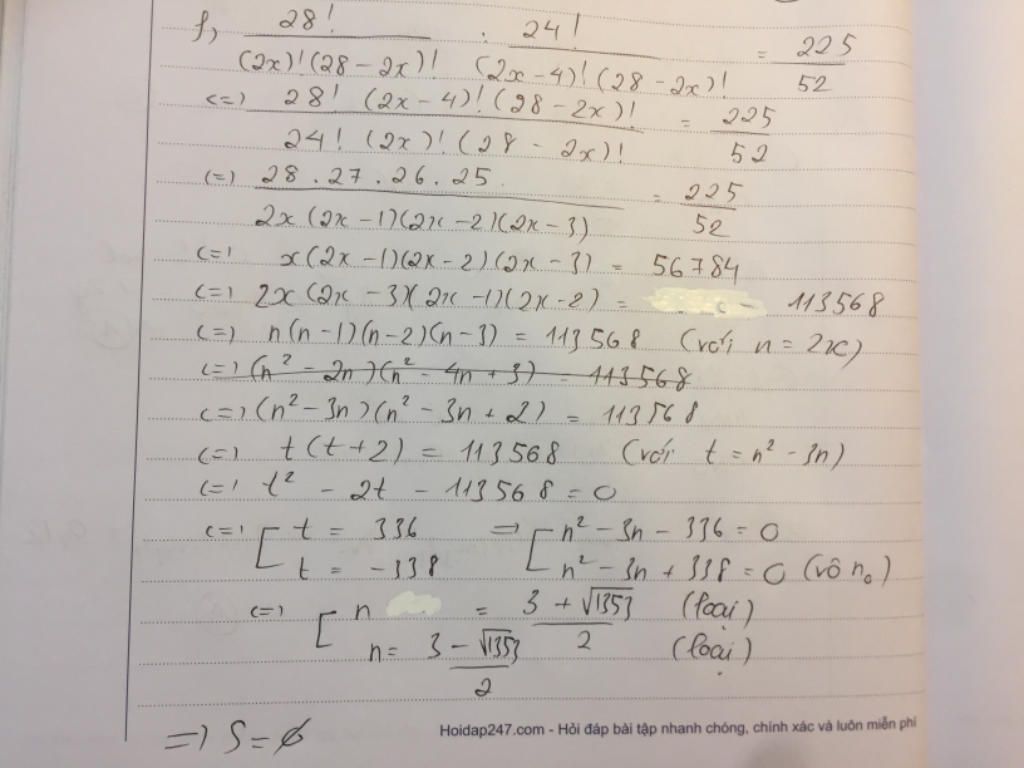 f, 28! / (2x)!(28 - 2x)! : 24! / (2x - 4)!(28 - 2x)! = 225 / 52
<=> 28! (2x - 4)! (28 - 2x)! / 24! (2x)! (28 - 2x)! = 225 / 52
<=> 28 . 27 . 26 . 25 / 2x (2x - 1)(2x - 2)(2x - 3) = 225 / 52
<=> x(2x - 1)(2x - 2)(2x - 3) = 56784
<=> 2x (2x - 3)(2x - 1)(2x - 2) = 113568
<=> n(n - 1)(n - 2)(n - 3) = 113568 (với n = 2x)
<=> (n² - 2n)(n² - 4n + 3) = 113568
<=> (n² - 3n)(n² - 3n + 2) = 113568
<=> t(t + 2) = 113568 (với t = n² - 3n)
<=> t² - 2t - 113568 = 0
<=> [ t = 336 => [ n² - 3n - 336 = 0
t = -338 n² - 3n + 338 = 0 (vô n₀)
<=> [ n = 3 + √1353 / 2 (loại)
n = 3 - √1353 / 2 (loại)
=> S = ∅
Hoidap247.com - Hỏi đáp bài tập nhanh chóng, chính xác và luôn miễn phí